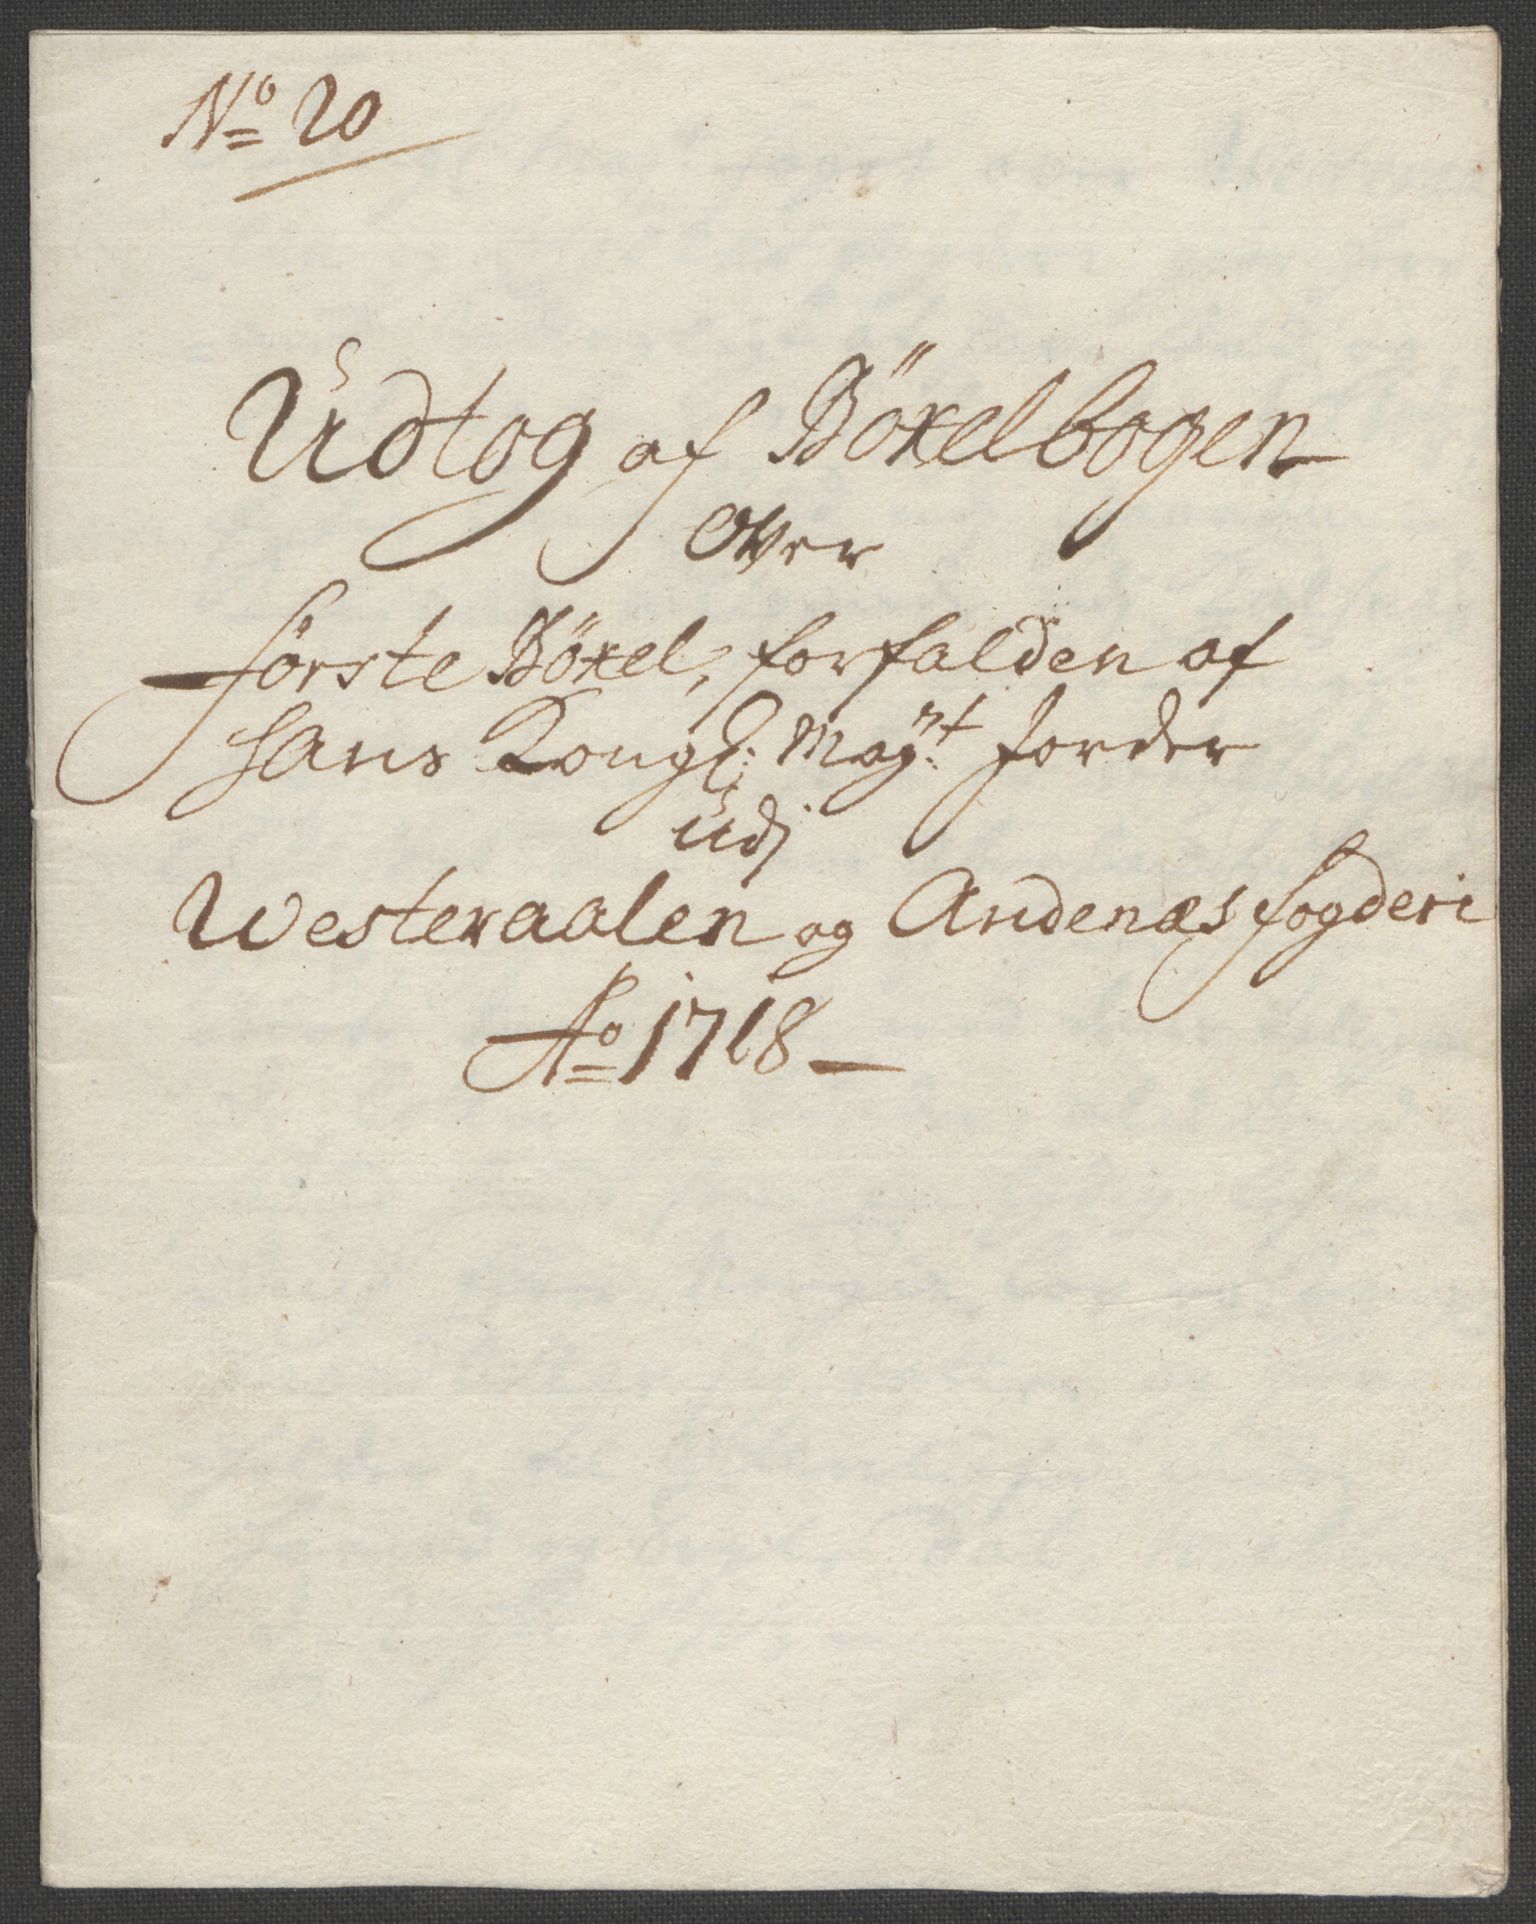 No 20
Udtog af Böxelbogen
Over
förste Böxel, forfalden af
Hans Kongl: Mayt: Jorder
udj
Westeraalen og Andenæs fogderi
Ao 1718